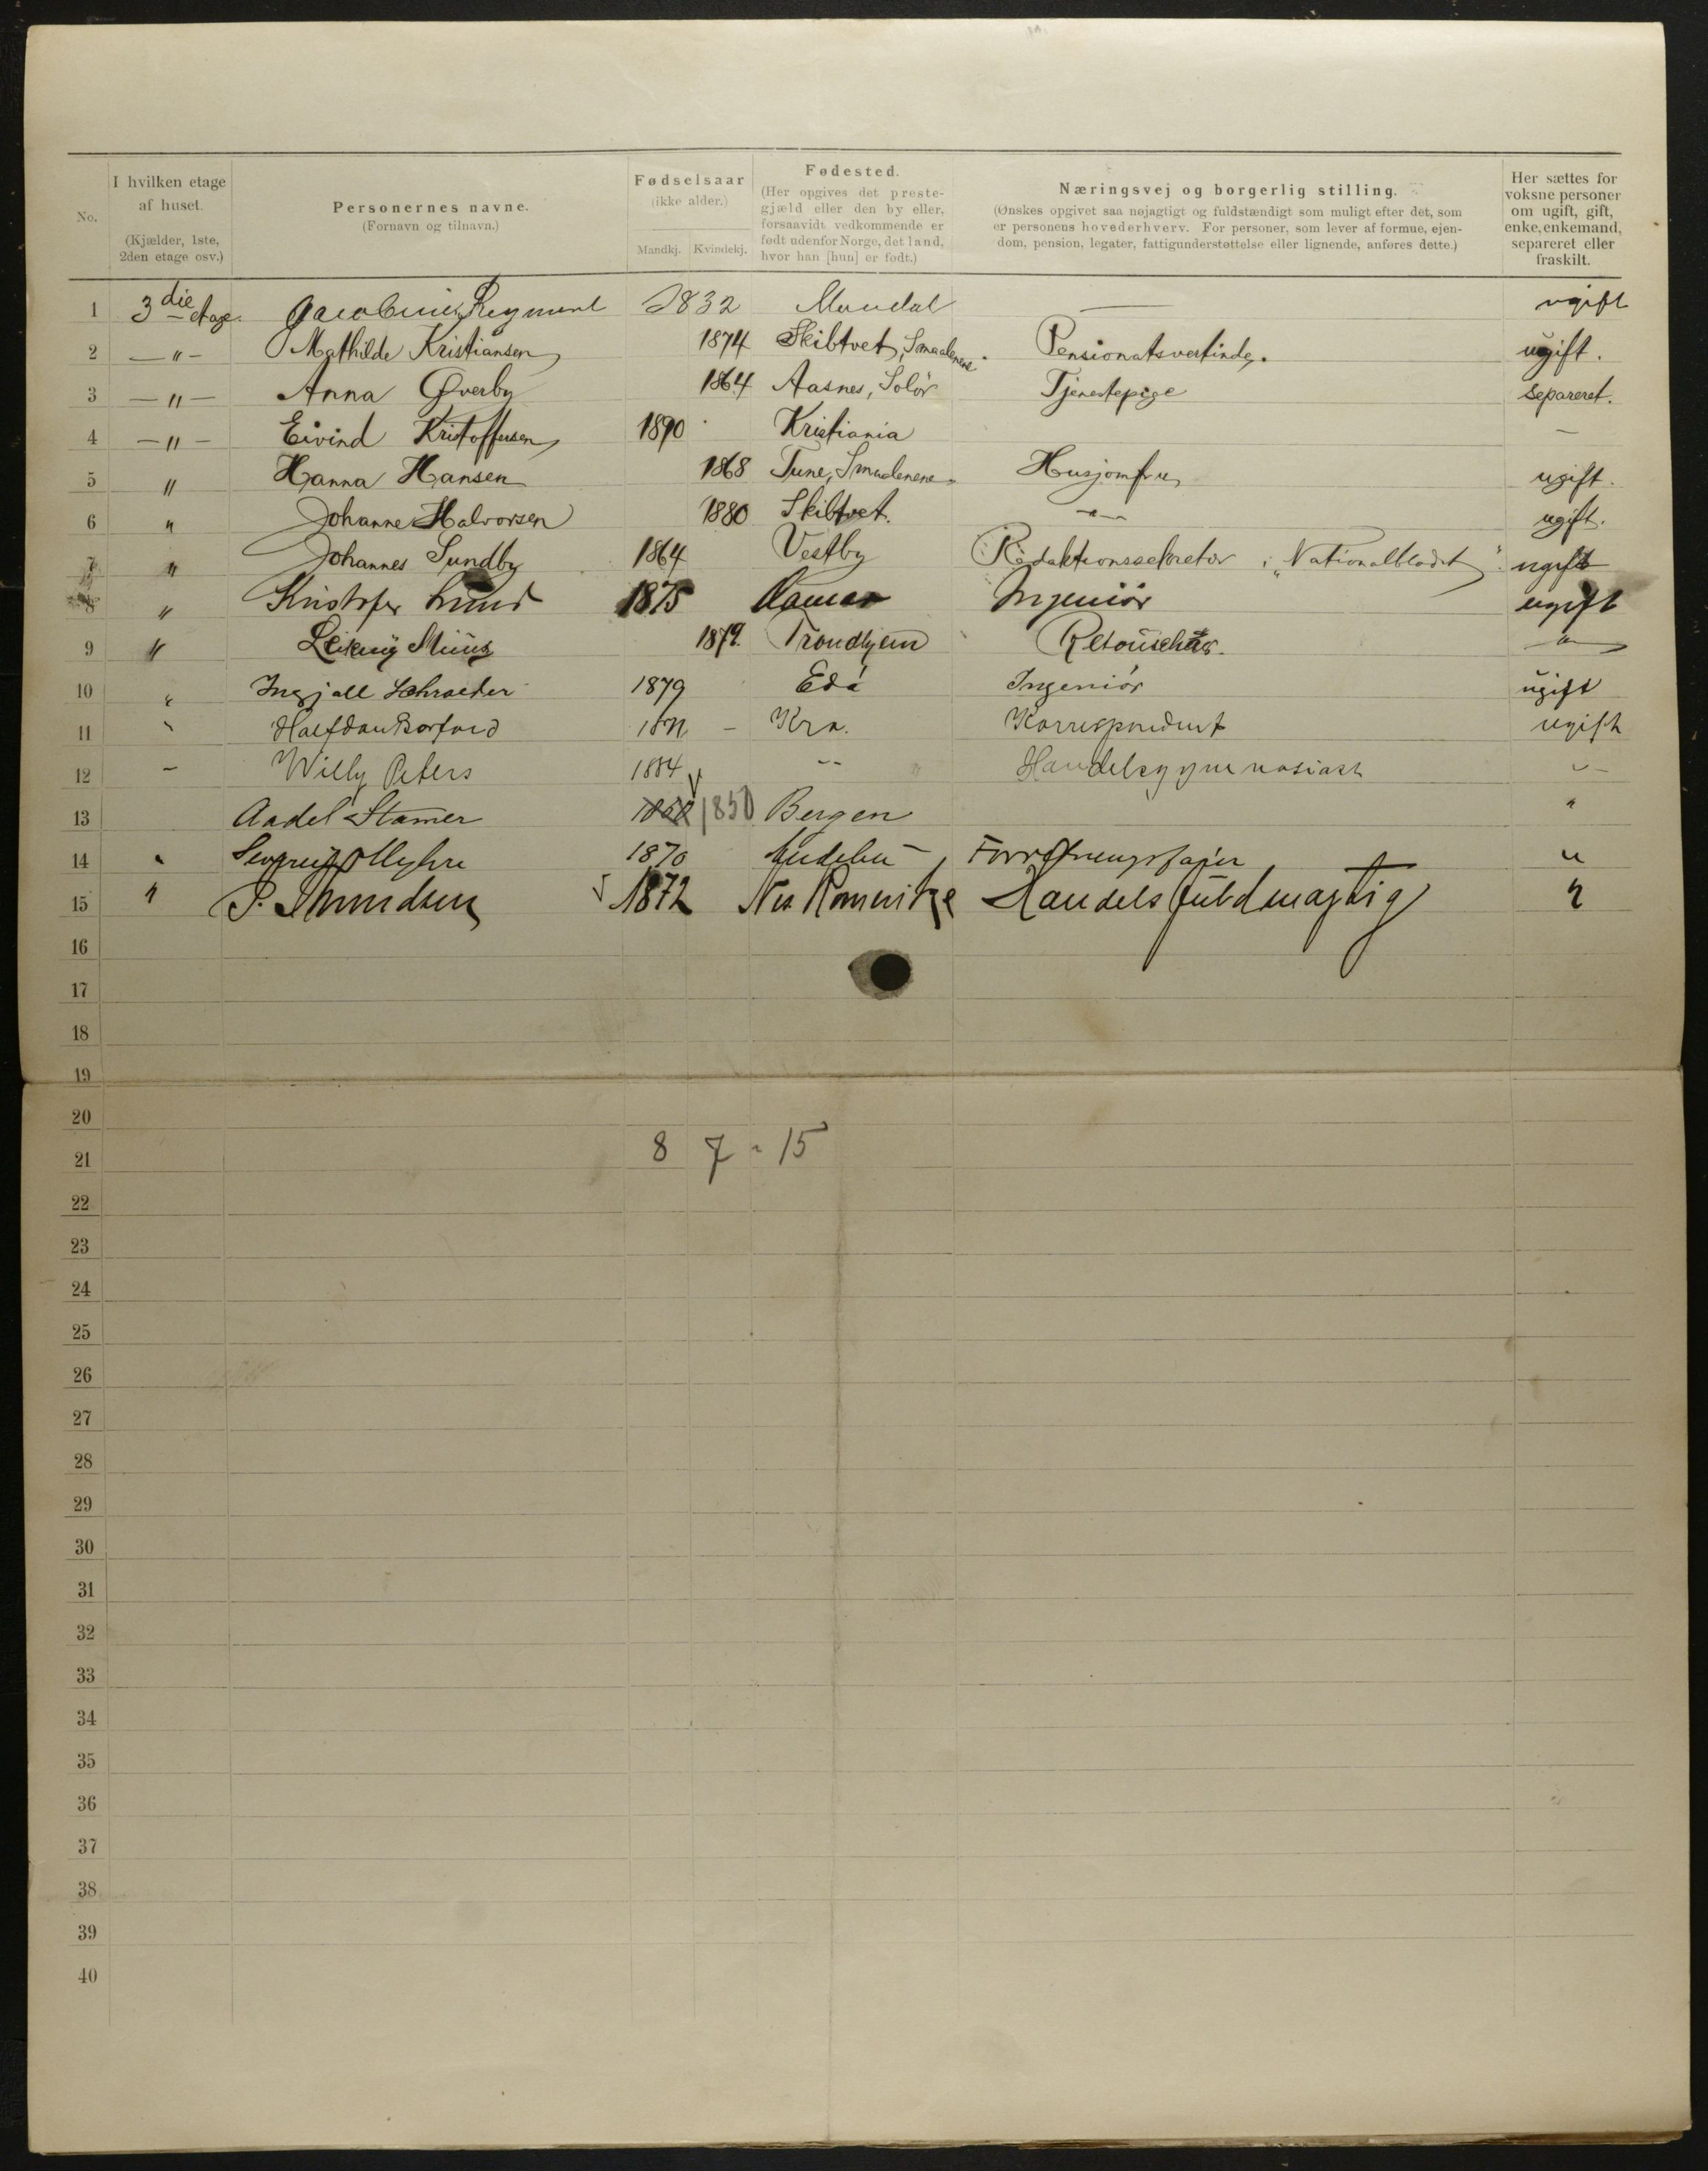 No.
I hvilken etage af huset. (Kjælder, 1ste, 2den etage osv.)
Personernes navne. (Fornavn og tilnavn.)
Fødselsaar (ikke alder.) Mandkj. Kvindekj.
Fødested. (Her opgives det prestegjæld eller den by eller, forsaavidt vedkommende er født udenfor Norge, det land, hvor han [hun] er født.)
Næringsvej og borgerlig stilling. (Ønskes opgivet saa nøjagtigt og fuldstændigt som muligt efter det, som er personens hovederhverv. For personer, som lever af formue, ejendom, pension, legater, fattigunderstøttelse eller lignende, anføres dette.)
Her sættes for voksne personer om ugift, gift, enke, enkemand, separeret eller fraskilt.
1 3die etage. 1832 Mandal — ugift
2 —"— Mathilde Kristiansen 1874 Skibtvet, Smaalenene. Pensionatsvertinde. ugift.
3 —"— Anna Øverby 1864 Aasnes, Solør Tjenestepige separeret.
4 —"— Eivind Kristoffersen 1890 Kristiania —
5 " Hanna Hansen 1868 Tune, Smaalenene. Husjomfru ugift.
6 " Johanne Halvorsen 1880 Skibtvet. —"— ugift.
7 " Johannes Sundby 1864 Vestby Redaktionssekretær i „Nationalbladet". ugift
8 " Kristofer Lund 1875 Hamar Ingeniør ugift
9 " 1879. Trondhjem —"—
10 " Ingjall Schroeder 1879 Eda Ingeniør ugift
11 " Halfdan Korrespondent Kra. ugift
12 – Willy Peters 1884 -- Handelsgymnasiast -"-
13 Aadel Stamer 1850 Bergen "
14 " Myhre 1870 Forretningsfører "
15 " 1872 Nes Romerike Handelsfuldmægtig "
16
17
18
19
20
21 8 7 - 15
22
23
24
25
26
27
28
29
30
31
32
33
34
35
36
37
38
39
40